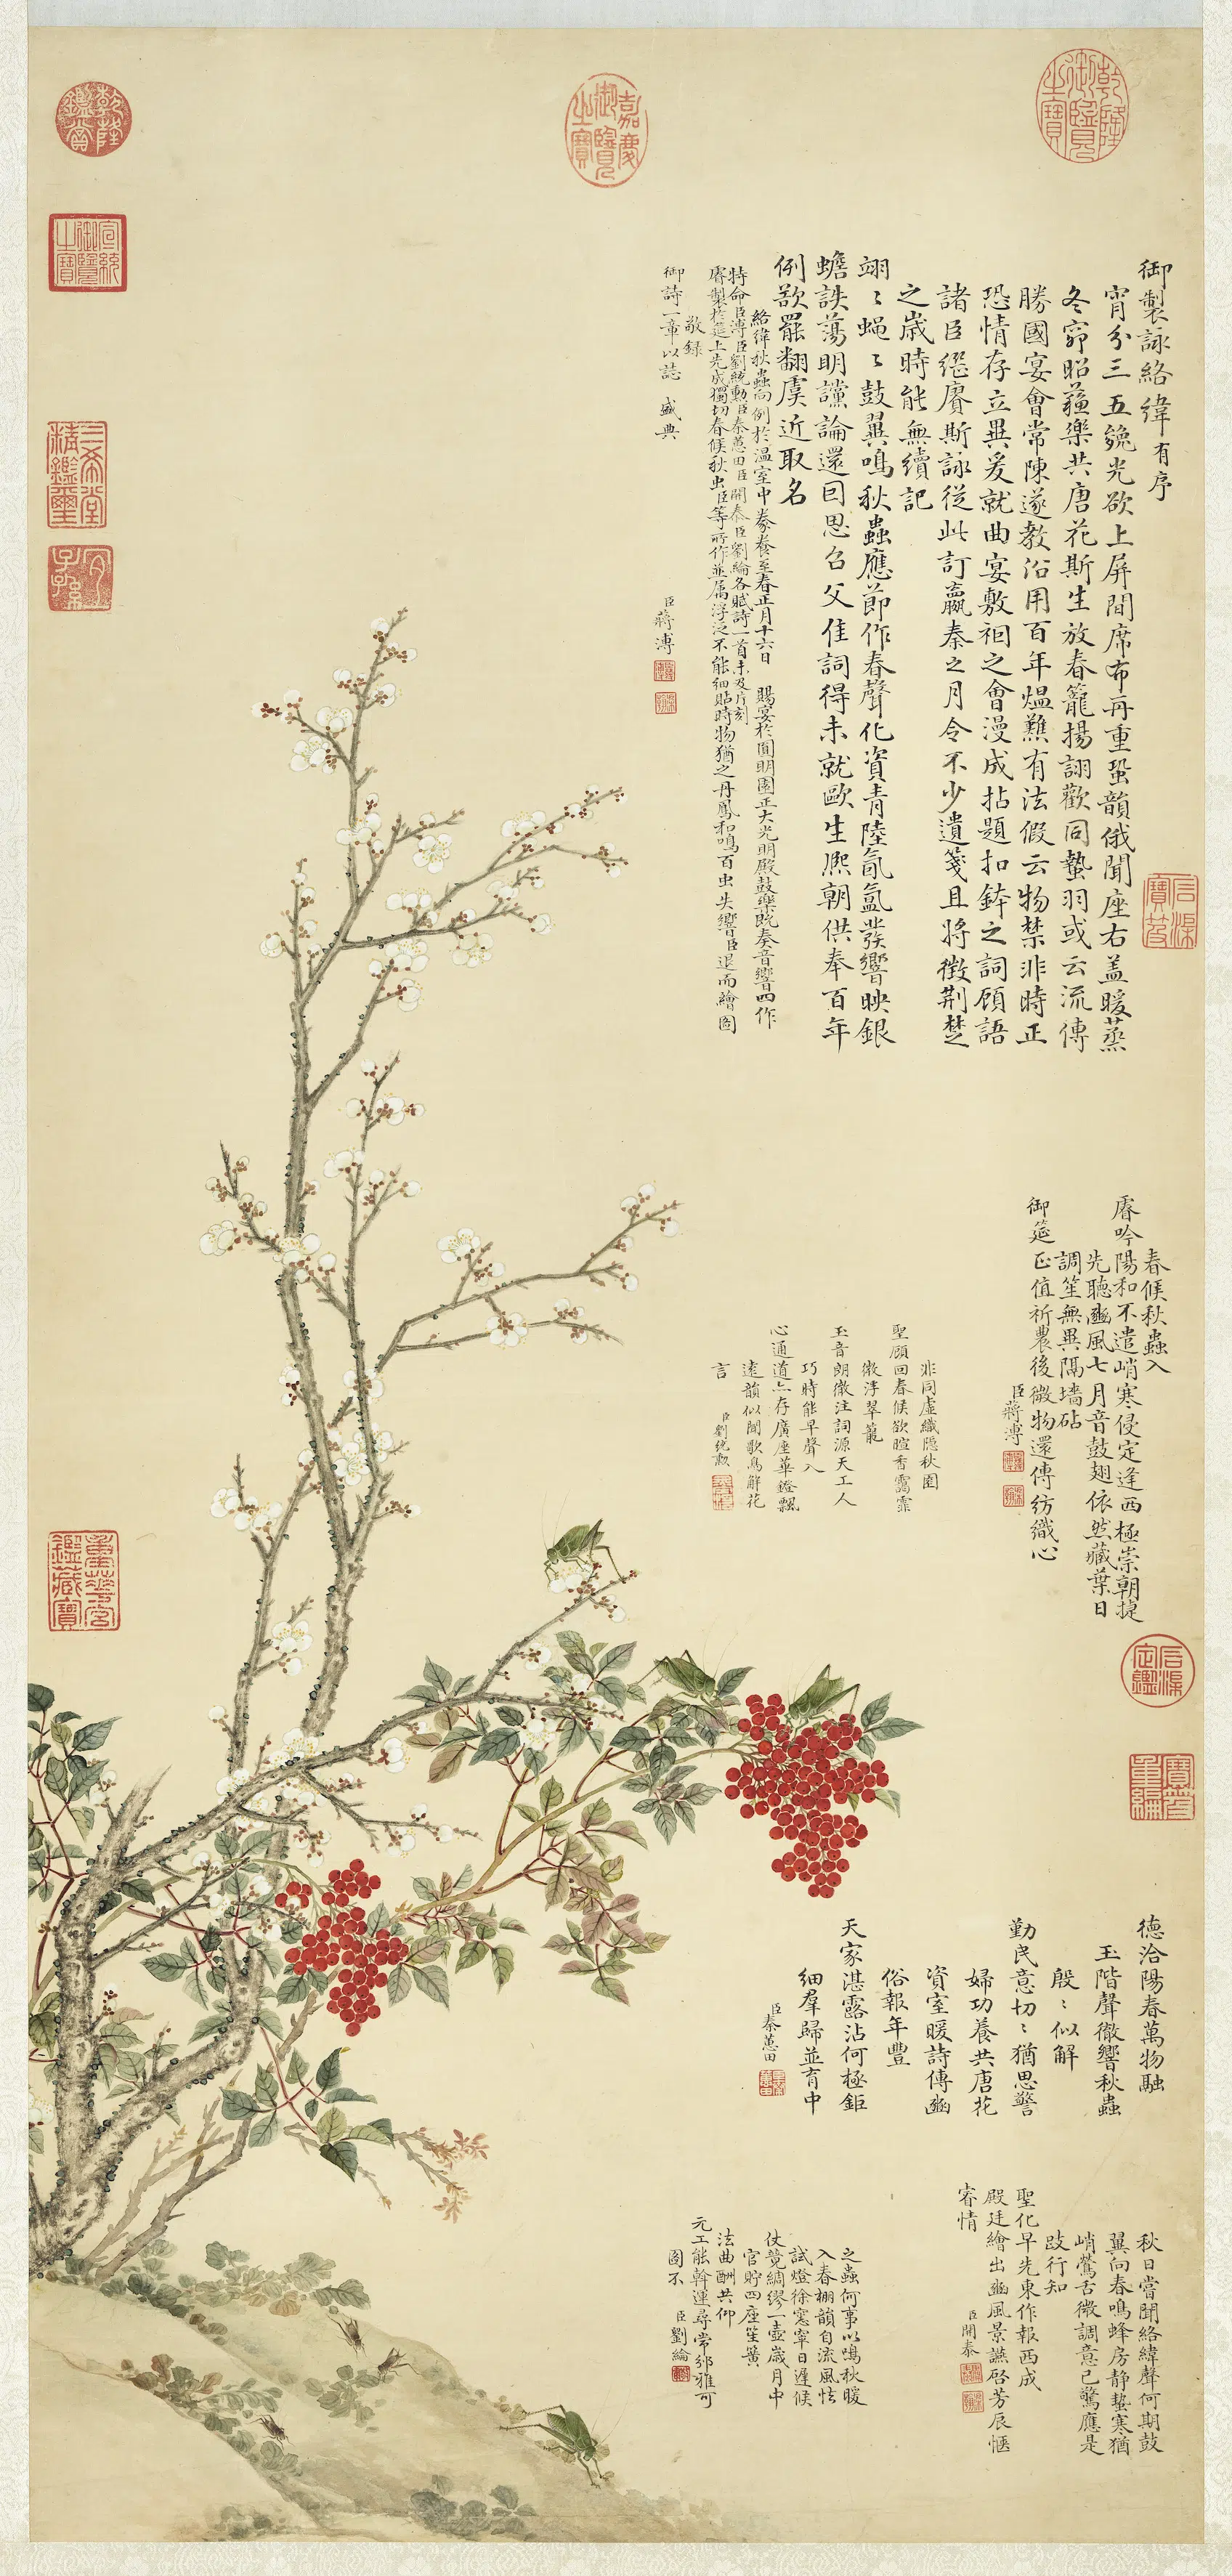 御製詠絡緯有序
宵分三五纔光欲上屏間席布再重蛩韻俄聞座右蓋暖蒸
冬窌昭蘓樂共唐花斯生放春籠揚詡歡同蟄羽或云流傳
勝國宴會常陳遂教沿用百年熅爇有法假云物禁非時正
恐情存立異爰就曲宴敷衽之會漫成拈題扣鉢之詞顧語
諸臣繼賡斯詠從此訂嬴秦之月令不少遺箋且將徵荊楚
之歲時能無續記
翊〻蝇〻鼓翼鳴秋蟲應節作春聲化資青陸氤氳發響映銀
蟾詄蕩明讜論還囙思召父佳詞得未就歐生熈朝供奉百年
例歆罷翻虞近取名
絡緯秋蟲向例於温室中豢養至春正月十六日 賜宴於圓明園正大光明殿鼓樂既奏音響四作
特命臣溥臣劉統勳臣秦蕙田臣開泰臣劉綸各賦詩一首未及片刻
睿製於筵上先成獨切春候秋虫臣等所作並属浮泛不能細貼時物猶之丹鳳和鳴百虫失響臣退而繪圖
敬録
御詩一章以誌 盛典
臣蔣溥
春候秋蟲入
睿吟陽和不遣峭寒侵定逢西極崇朝捷
先聽豳風七月音鼓翅依然藏葉日
調笙無異隔墻砧
御筵正值祈農後微物還傳紡織心
臣蔣溥
非同虛織隱秋園
聖顧回春候欲暄香靄霏
微浮翠蘢
玉音朗徹注詞源天工人
巧時能早聲入
心通道亦存廣座華鐙飄
遠韻似聞歌鳥解花
言
臣劉統勳
德洽陽春萬物融
玉階聲徹響秋蟲
殷〻似解
勤民意切〻猶思警
婦功養共唐花
資室暖詩傳豳
俗報年豐
天家湛露沾何極鉅
細羣歸並育中
臣秦蕙田
秋日嘗聞絡緯聲何期鼓
翼向春鳴蜂房静蟄寒猶
峭鶯舌微調意已驚應是
跂行知
聖化早先東作報西成
殿廷繪出豳風景讌啓芳辰愜
睿情
臣開泰
之蟲何事以鳴秋暖
入春棚韻自流風怯
試燈徐窓寧日遲候
仗競綢繆一壺歲月中
官貯四座笙簧
法曲酬共仰
元工能斡運尋常邠雅可
圖不
臣劉綸
乾隆御覽之寶
嘉慶御覽之寶
乾隆鑑賞
宣統御覽之寶
三希堂精鑑璽
宜子孫
石渠寶笈
重華宮鑑藏寶
石渠定鑑
寶笈重編